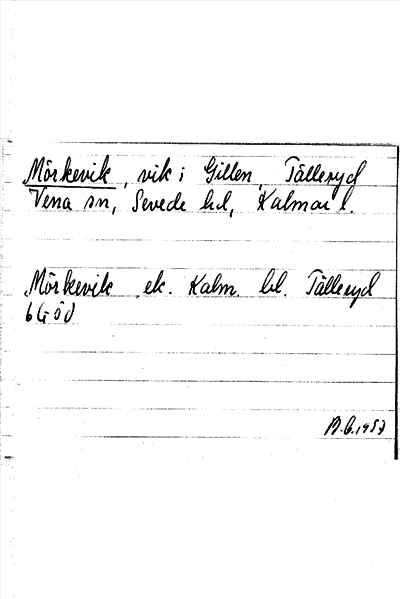 Mörkevik, vik i Gillen, Tälleryd
Vena sn, Sevede hd, Kalmar l.
Mörkevik ek. Kalm. bl. Tälleryd
6GÖd
B.G. 1957